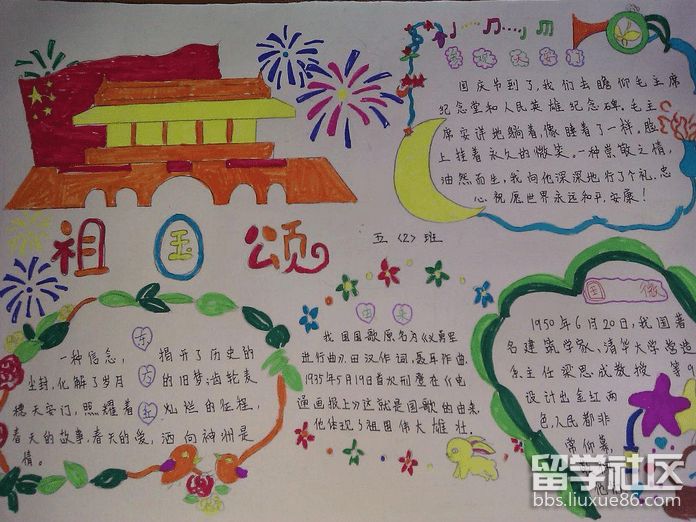 祖国颂
五〈2〉班
国庆节到了,我们去瞻仰毛主席
纪念堂和人民英雄纪念碑。毛主
席安详地躺着,像睡着了一样。脸
上挂着永久的微笑。一种崇敬之情,
油然而生,我向他深深地行了个礼,忠
心祝愿世界永远和平,安康!
东方红
一种信念,揭开了历史的
尘封,化解了岁月的旧梦;齿轮麦
穗天安门,照耀着灿烂的征程,
春天的故事,春天的爱,洒向神洲是
情。
由来
我国国歌原名为《义勇军
进行曲》,田汉作词,聂耳作曲,
1935年5月19日首次刊登在《电
通画报上》这就是国歌的由来,
他体现了祖国伟大雄壮.
国徽
1950年6月20日,我国著
名建筑学家、清华大学营造
系主任梁思成教授 第9
设计出金红两
色,人民都非
常仰慕,
留学社区
bbs.liuxue86.com